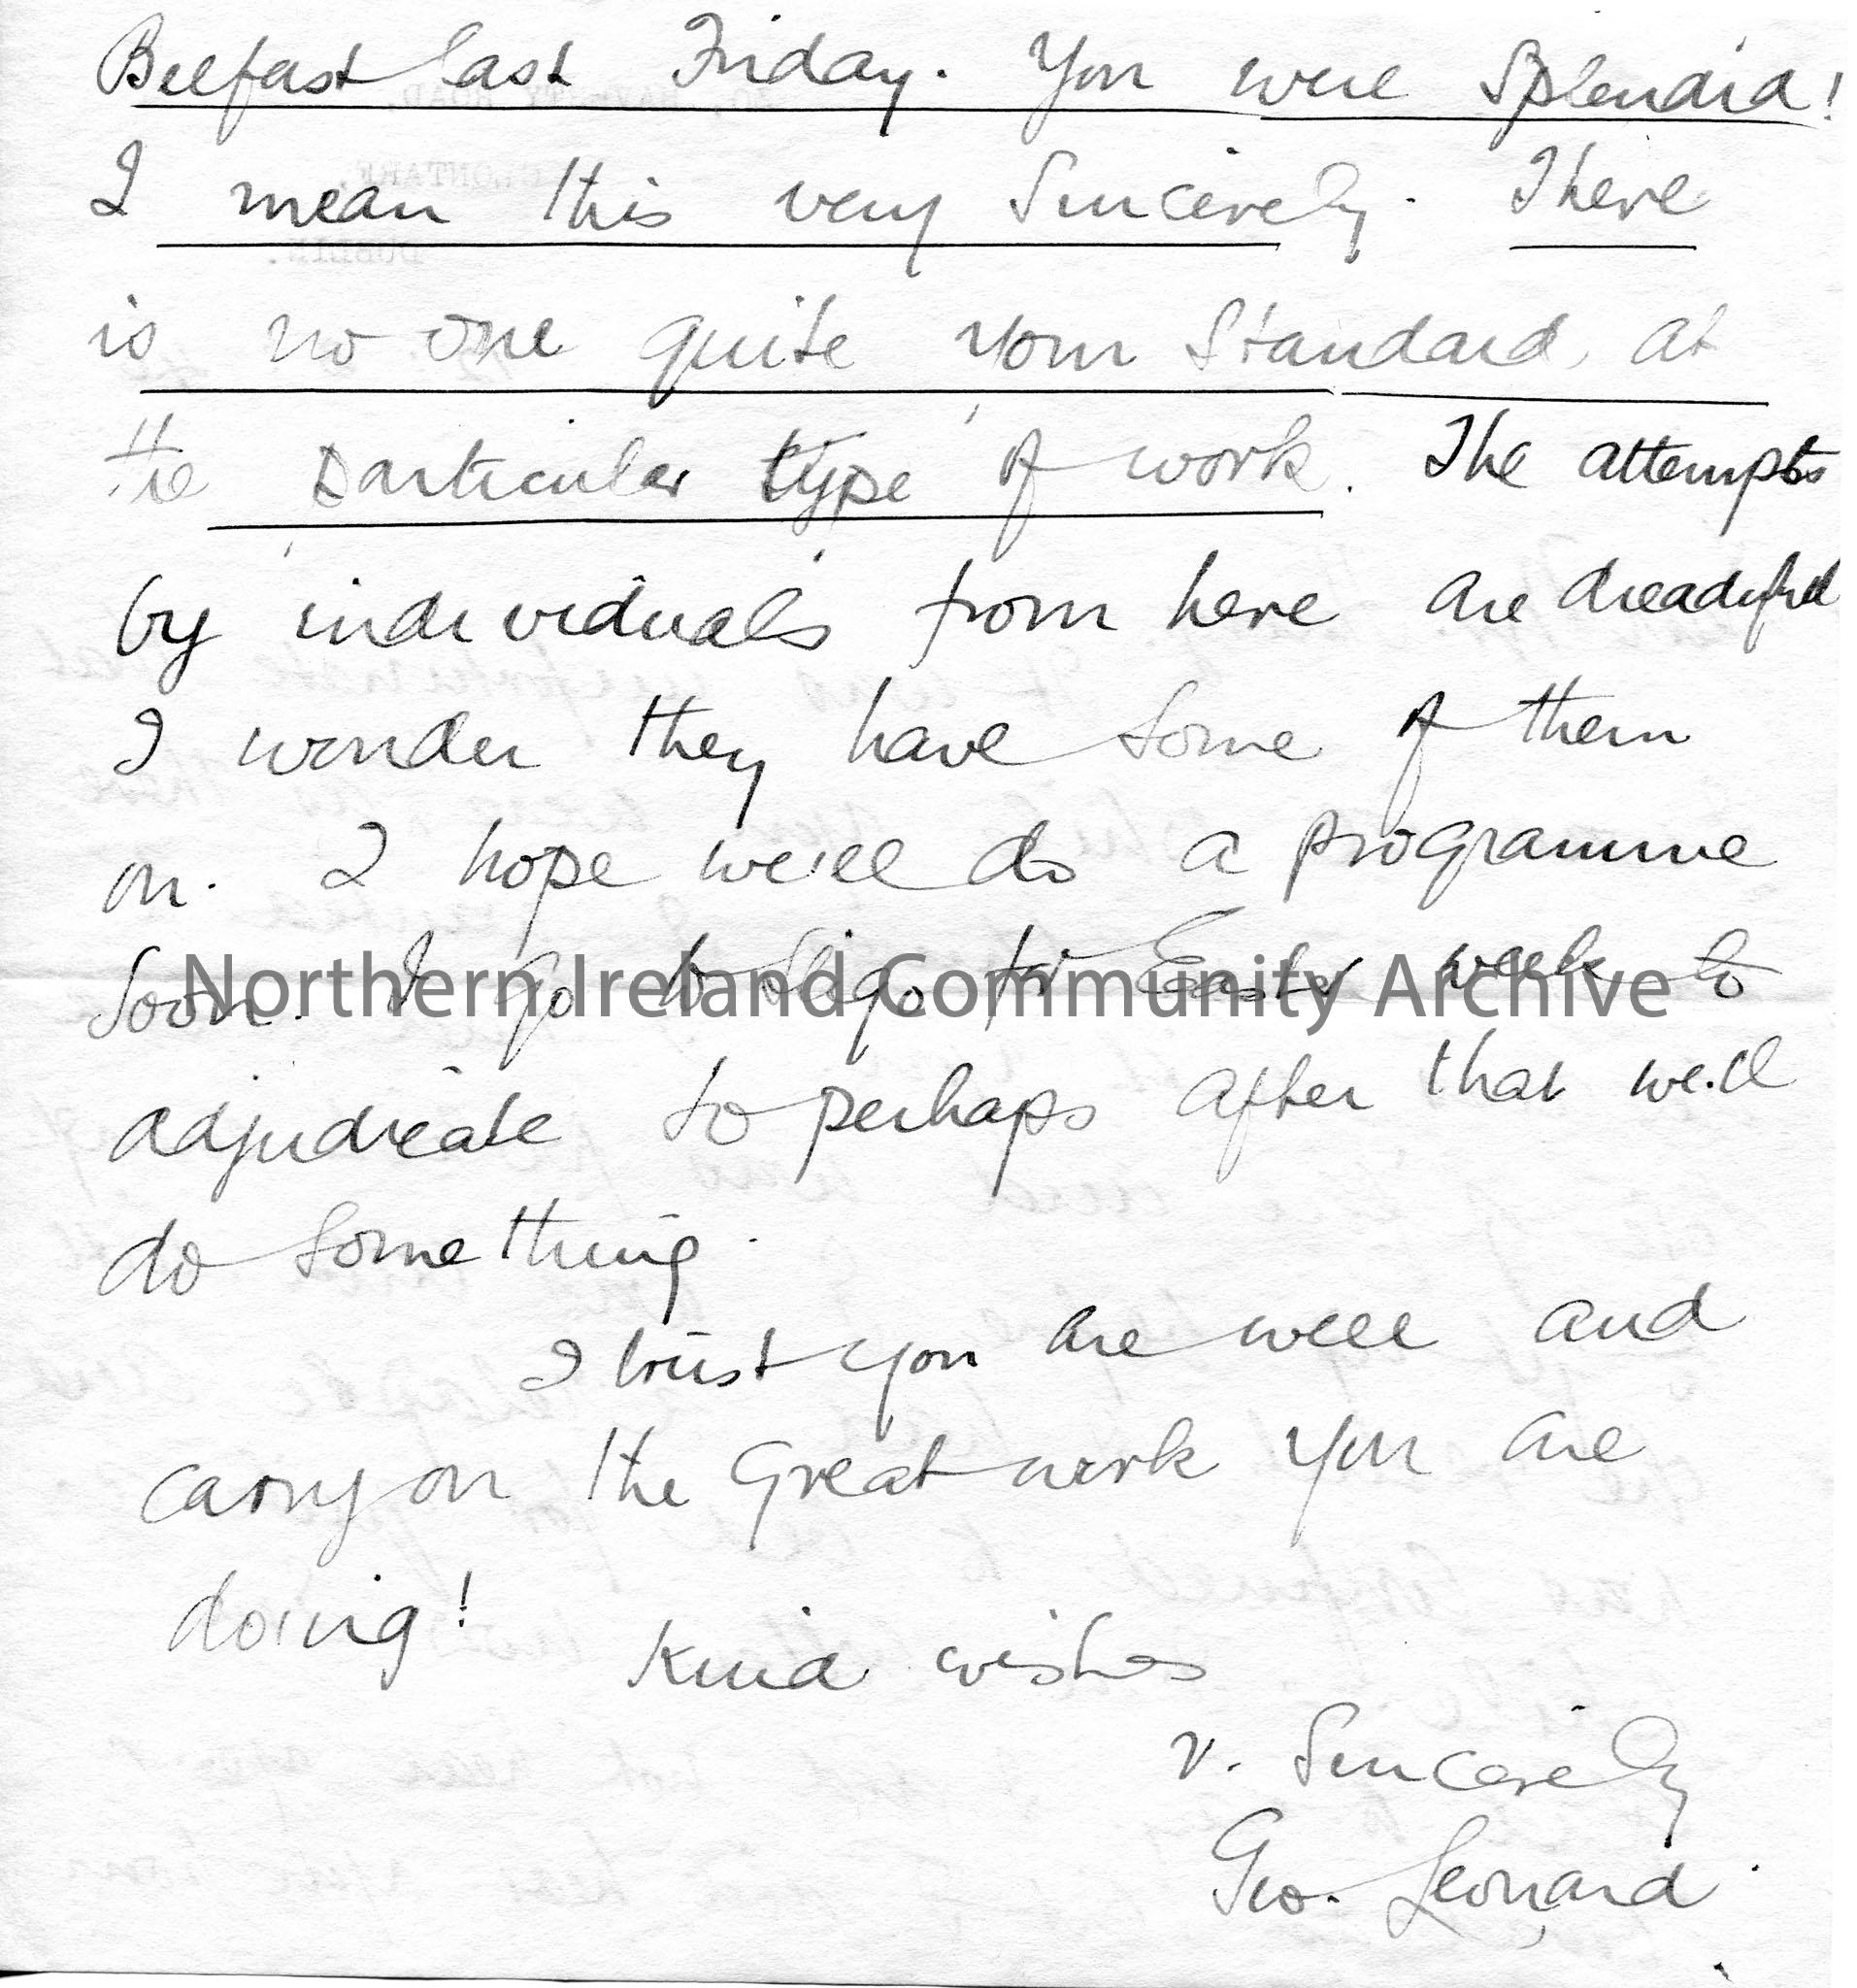 Belfast last Friday. You were Splendid!
I mean this very Sincerely. There
is no one quite your Standard, at
the particular type of work. The attempts
by individuals from here are dreadful
I wonder they have some of them
on. I hope we'll do a programme
Soon. I go to Sligo for Easter week to
Northern Ireland Community Archive
adjudicate so perhaps after that we'll
do something.
I trust you are well and
carry on the Great work you are
doing!
Kind wishes
v. Sincerely
Geo. Leonard